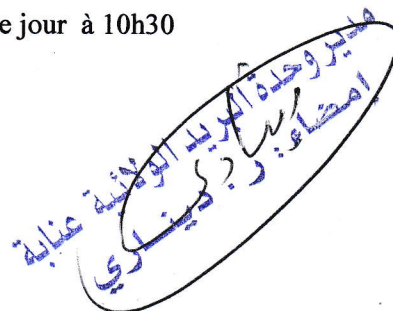 e jour à 10h30
مدير وحدة البريد الولائية عنابة
إمضاء: ر. دينـاري